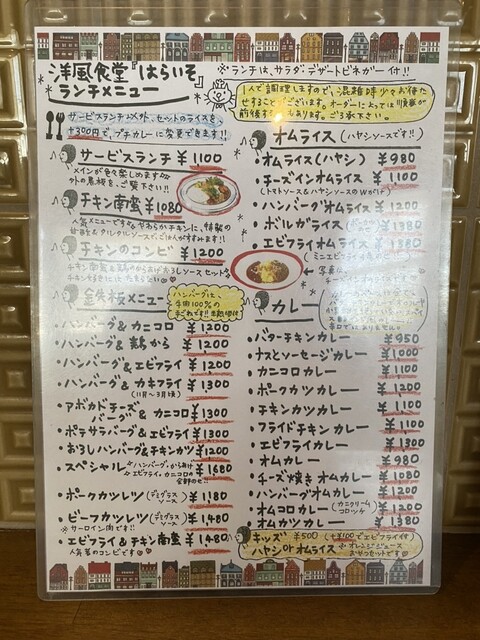 洋風食堂『はらいそ』
ランチメニュー
※ランチは、サラダ・デザートビネガー付!!
1人で調理しますので、混雑時少々お待た
せすることがございます。オーダーによっては順番が
前後する あります。ご了承下さい。
サービスランチ以外、セットのライスを、
+390円で、プチカレーに変更できます!!
サービスランチ ¥1100
メインが色々楽しめます
外の黒板を、ご覧下さい!!
チキン南蛮 ¥1080
人気メニューです やわらかチキンに、特製の
甘酢&タルタルソースで、ごはんがすすみます!!
チキンのコンビ ¥1200
チキン南蛮&鶏のからあげ おろしソースセット
チキン好きにはたまらない
鉄板メニュー
ハンバーグは、
牛肉100%の
手ごねです!!
・ハンバーグ&カニコロ ¥1200
・ハンバーグ&鶏から ¥1200
・ハンバーグ&エビフライ ¥1200
・ハンバーグ&カキフライ ¥1300
(11月〜3月頃)
・アボカドチーズバーグ&カニコロ ¥1300
・ポテサラバーグ&エビフライ ¥1300
・おろしハンバーグ&チキンカツ ¥1200
・スペシャル ¥1680
ハンバーグ・から揚げ
エビフライ・カニコロの
全部のせ!!
・ポークカツレツ(デミグラスソース) ¥1,180
・ビーフカツレツ(デミグラスソース) ¥1,480
※サーロイン肉です!!
・エビフライ&チキン南蛮 ¥1,480
人気者のコンビです
オムライス (ハヤシソースです!!)
・オムライス(ハヤシ) ¥980
・チーズインオムライス ¥1180
(トマトソース&ハヤシソースのWがけ)
・ハンバーグオムライス ¥1200
・ボルガライス ¥1380
・エビフライオムライス ¥1380
(ミニエビフライ
写真
カレー
・バターチキンカレー ¥950
・ナスとソーセージカレー ¥1000
・カニコロカレー ¥1100
・ポークカツカレー ¥1200
・チキンカツカレー ¥1100
・フライドチキンカレー ¥1100
・エビフライカレー ¥1300
・オムカレー ¥980
・チーズ焼きオムカレー ¥1080
・ハンバーグオムカレー ¥1200
・オムコロカレー(カニクリームコロッケ) ¥1200
・オムカツカレー ¥1380
キッズ ¥500 (+¥100でエビフライ付)
ハヤシorオムライス
オレンジジュース
おやつセットです